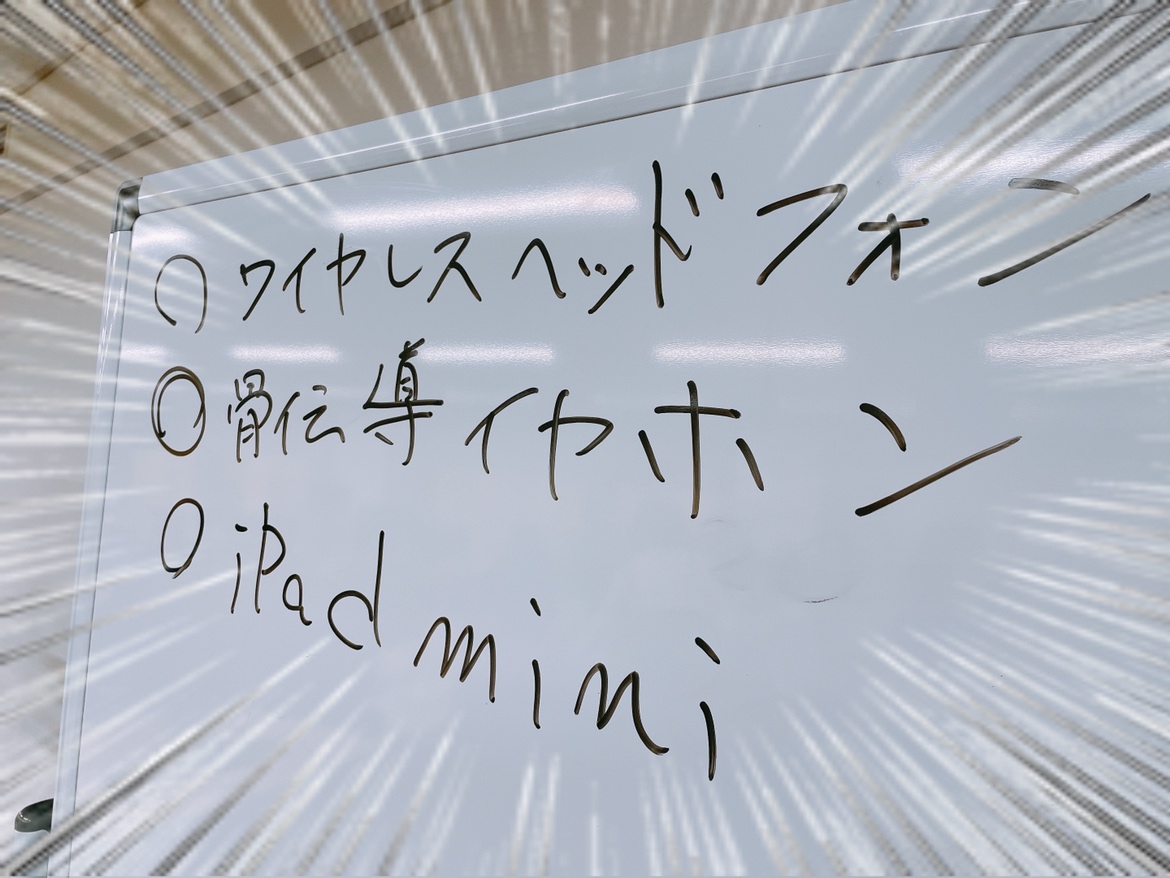 ○ワイヤレスヘッドフォン
◎骨伝導イヤホン
○iPad mini